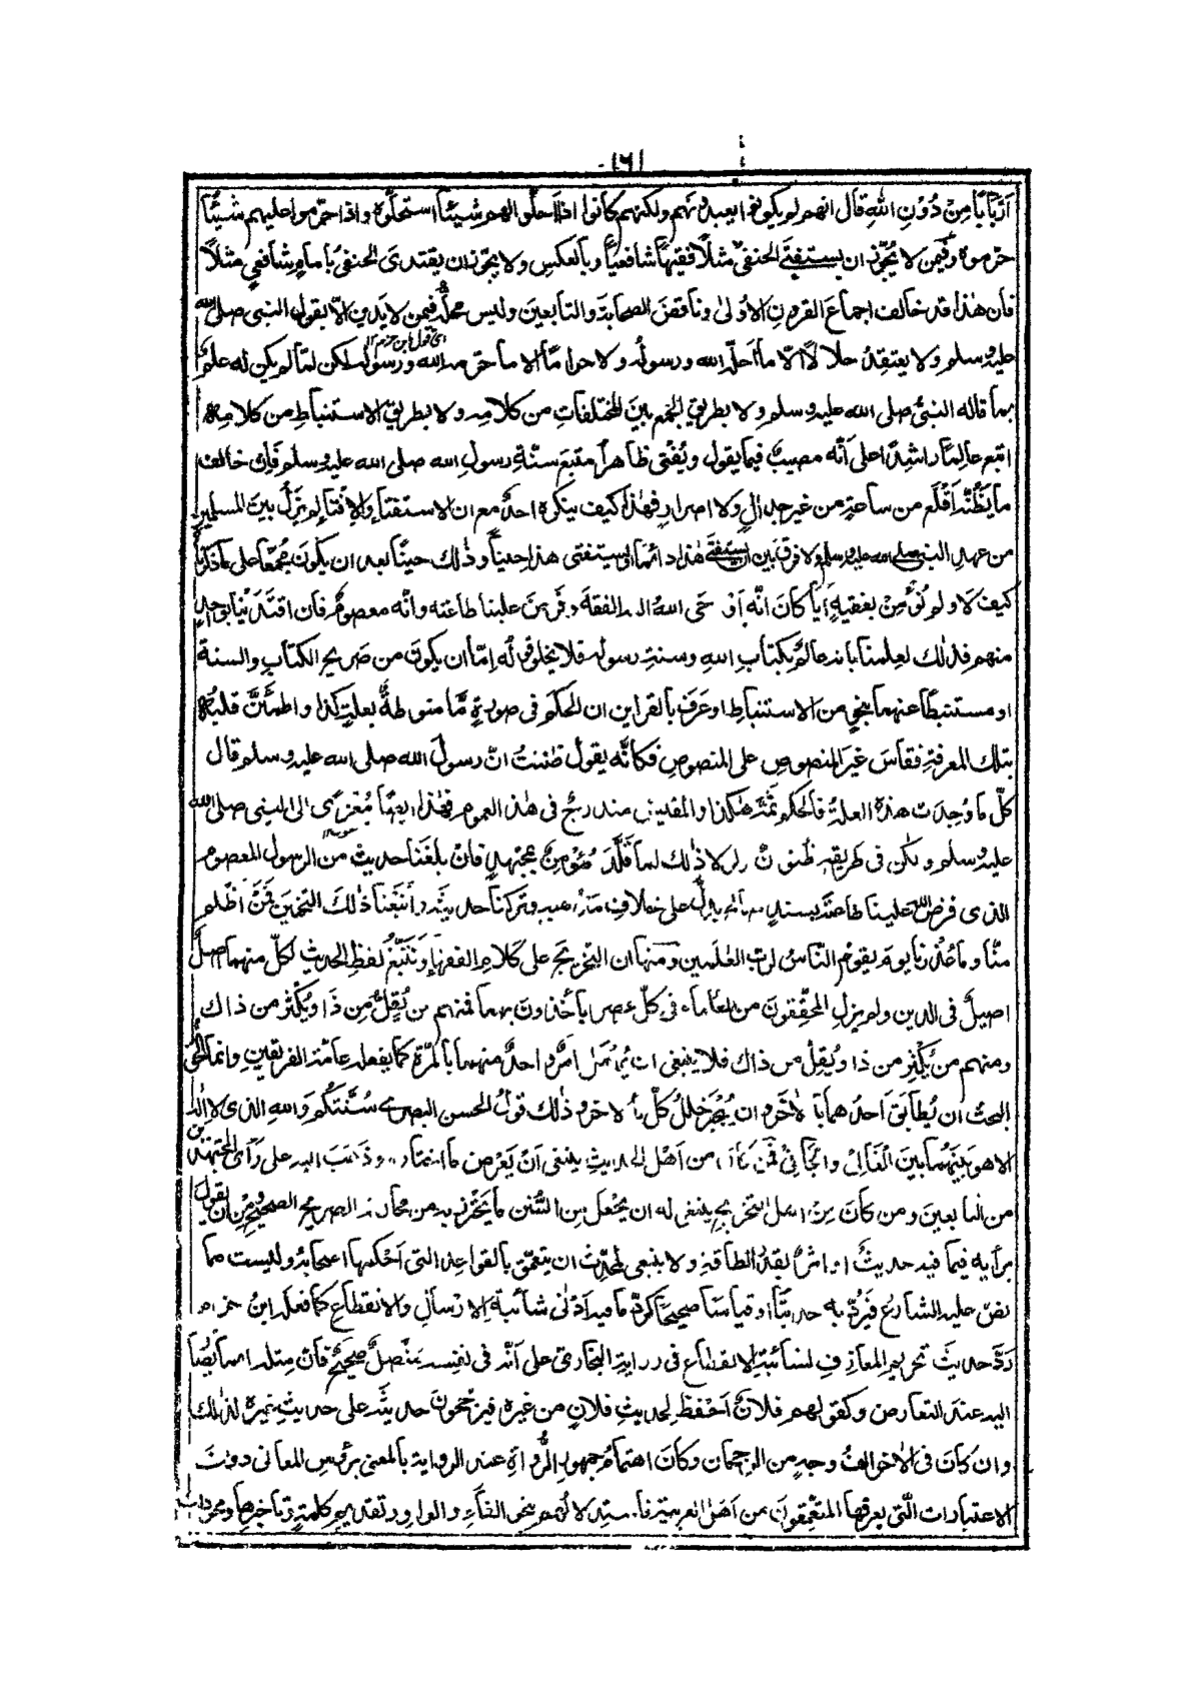 ١٦١
اَرْبَابًا مِنْ دُوْنِ اللهِ قال انهم لم يكونوا يعبدونهم ولكنهم كانوا اذا احلّوا لهم شيئًا استحلّوه واذا حرّموا عليهم شيئًا
حرّموه وفيمن لا يُجوّز ان يستفتي الحنفيُّ مثلًا فقيهًا شافعيًا وبالعكس ولا يجوّز ان يقتدى الحنفيُّ بامامٍ شافعي مثلًا
فان هٰذا قد خالف اجماع القرون الاولىٰ وناقض الصحابة والتابعين وليس محلّه فيمن لا يدين الّا بقول النبى صلى الله
اى قول ابن حزم ١٢
عليه وسلم ولا يعتقد حلالًا الّا ما احلّه الله ورسوله ولا حرامًا الا ما حرّمه الله ورسوله لكن لمّا لم يكن له علمٌ
بما قاله النبىُّ صلى الله عليه وسلم ولا بطريق الجمع بين المختلفات من كلامه ولا بطريق الاستنباط من كلامه
اتبع عالمًا راشدًا على اَنّه مصيبٌ فيما يقول ويُفْتى ظاهرًا متبع سنّةِ رسول الله صلى الله عليه وسلم فان خالف
ما يَظُنُّه اَقْلَع من ساعته من غير جدالٍ ولا اصرارٍ فهٰذا كيف ينكره احدٌ مع ان الاستفتاء والافتاء لم يزل بين المسلمين
من عهد النبى صلى الله عليه وسلم ولا فرق بين ان يستفتي هٰذا دائمًا او يستفتى هذا حينًا وذٰلك حينًا بعد ان يكون مُجمعًا على ما ذكرناه
كيف لا ولم نُؤمِنْ بفقيهٍ اَيًّا كانَ انّه اَوْحَى اللهُ اليه الفقهَ وفرض علينا طاعته وانّه معصومٌ فان اقتدَيْنا بواحدٍ
منهم فذٰلك لعلمنا بانه عالمٌ بكتاب اللهِ وسنةِ رسوله فلا يخلو قوله اِمّا ان يكون من صَرِيحِ الكتابِ والسنة
او مستنبطًا عنهما بنحوٍ من الاستنباط او عَرَفَ بالقراين ان الحكم فى صورةٍ مّا منوطةٌ بعلةِ كذا واطمئَنَّ قلبُه
بتلك المعرفة فقاسَ غيرَ المنصوصِ على المنصوصِ فكانّه يقول ظننتُ انّ رسولَ الله صلى الله عليه وسلم قال
كلّ ما وُجدت هذه العلة فالحكم ثَمَّه هٰكذا والمقيس مندرجٌ فى هٰذا العموم فهٰذا ايضًا مُعْزًى الى النبى صلى الله
عليه وسلم ولكن فى طريقه ظنون ولولا ذٰلك لما قَلَّدَ مُؤمِنٌ بمجتهدٍ فان بلغَنا حديثٌ من الرسول المعصوم
الذى فرض الله علينا طاعتَه بسندٍ صالح يدلُّ على خلاف مذهبه وتركنا حديثَه واتّبعْنا ذٰلك التخمينَ فَمَنْ اَظْلم
منّا وما عُذرنا يوم يقوم النّاسُ لرب العٰلمين ومنها ان التخريج على كلام الفقهاء وتَتَبُّعَ لفظِ الحديث لكلّ منهما اصلٌ
اصيلٌ فى الدين ولم يزل المحقّقون من العلماء فى كلّ عصر ياخذون بهما فمنهم من يُقِلُّ مِن ذَا ويُكْثر من ذاك
ومنهم من يُكْثِر من ذا ويُقِلُّ من ذاك فلا ينبغى ان يُهمَلَ امرُ واحدٍ منهما بالمرّة كما يفعله عامّة الفريقين وانما الحقُّ
البحت ان يُطابَق اَحدهما بالاٰخر وان يُجبَر خللُ كلٍّ بالاٰخر وذٰلك قولُ الحسن البصرى سُنَّتكُم وَاللهِ الذى لا اِلٰه
الا هو بَيْنَهُما بين الغَالِى والجَافى فَمَن كان من اَهْل الحديث ينبغى اَن يَعْرِض ما اختاره وذَهَبَ اليه على رَأى المجتهدين
من التابعين ومن كان مِنْ اهل التخريج ينبغى له ان يجْعل مِن السُّنن ما يَحْترز به من مخالفة الصريح الصحيح ومن ان يقول
برأيه فيما فيه حديثٌ او اثرٌ بقدر الطاقة ولا ينبغى لمحدِّث ان يتعمّق بالقواعد التى اَحْكمها اصحابه وليست مما
نصّ عليه الشارع فيَرُدَّ به حديثًا او قياسًا صحيحًا كردِّ ما فيه اَدْنى شائبة الارسال والانقطاع كما فعله ابنُ حزم
رَدَّ حديثَ تحريم المعازف لشائبة الانقطاع فى رواية البخارى على اَنّه فى نفسه متّصلٌ صحيحٌ فانّ مثله انما يُصار
اليه عند التعارض وكقولهم فلانٌ اَحْفظ لحديث فلانٍ من غيره فيرجّحون حديثَه على حديثِ غيره لذٰلك
وان كان فى الاٰخر الفُ وجهٍ من الرجحان وكان اهتمامُ جمهورِ الرُّواة عند الرواية بالمعنى برؤس المعانى دون
الاعتبارات الّتى يعرفها المتعمّقون من اَهْل العربية فاستدلالهم بنحو الفاءِ والواو وتقديم كلمةٍ وتاخيرها ونحو ذلك